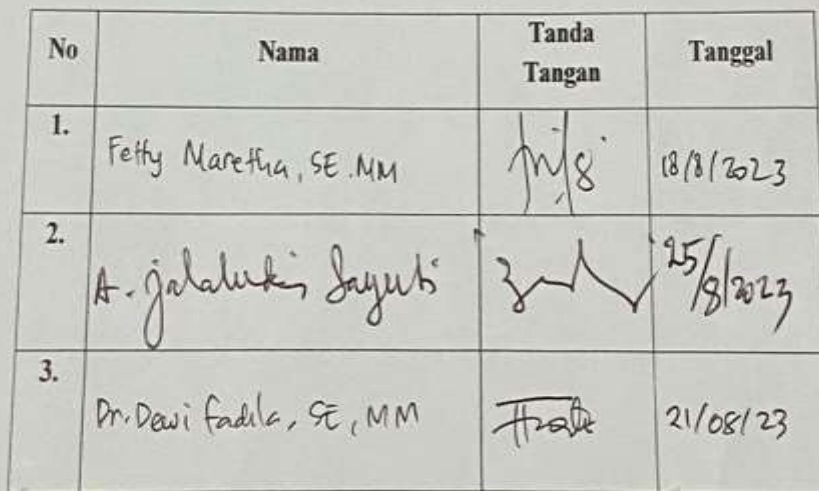 No Nama Tanda Tangan Tanggal
1. Fetty Maretha, SE.MM 18/8/2023
2. A. Jalaludin Sayuti 25/8/2023
3. Dr. Dewi Fadila, SE, MM 21/08/23